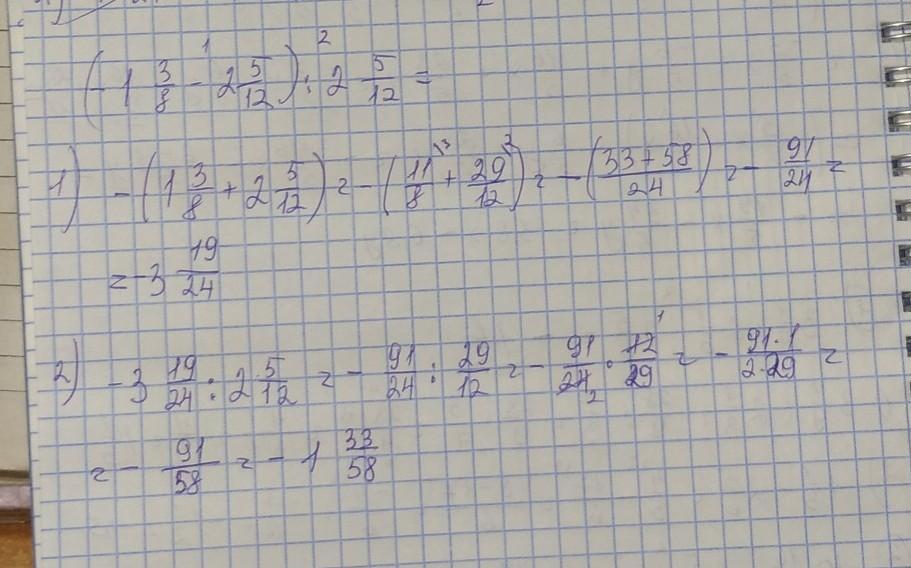 (-1 3/8 - 2 5/12) : 2 5/12 =
1) -(1 3/8 + 2 5/12) = -(11/8 + 29/12) = -(33+58/24) = - 91/24 =
= -3 19/24
2) -3 19/24 : 2 5/12 = - 91/24 : 29/12 = - 91/24 · 12/29 = - 91·1/2·29 =
= - 91/58 = - 1 33/58